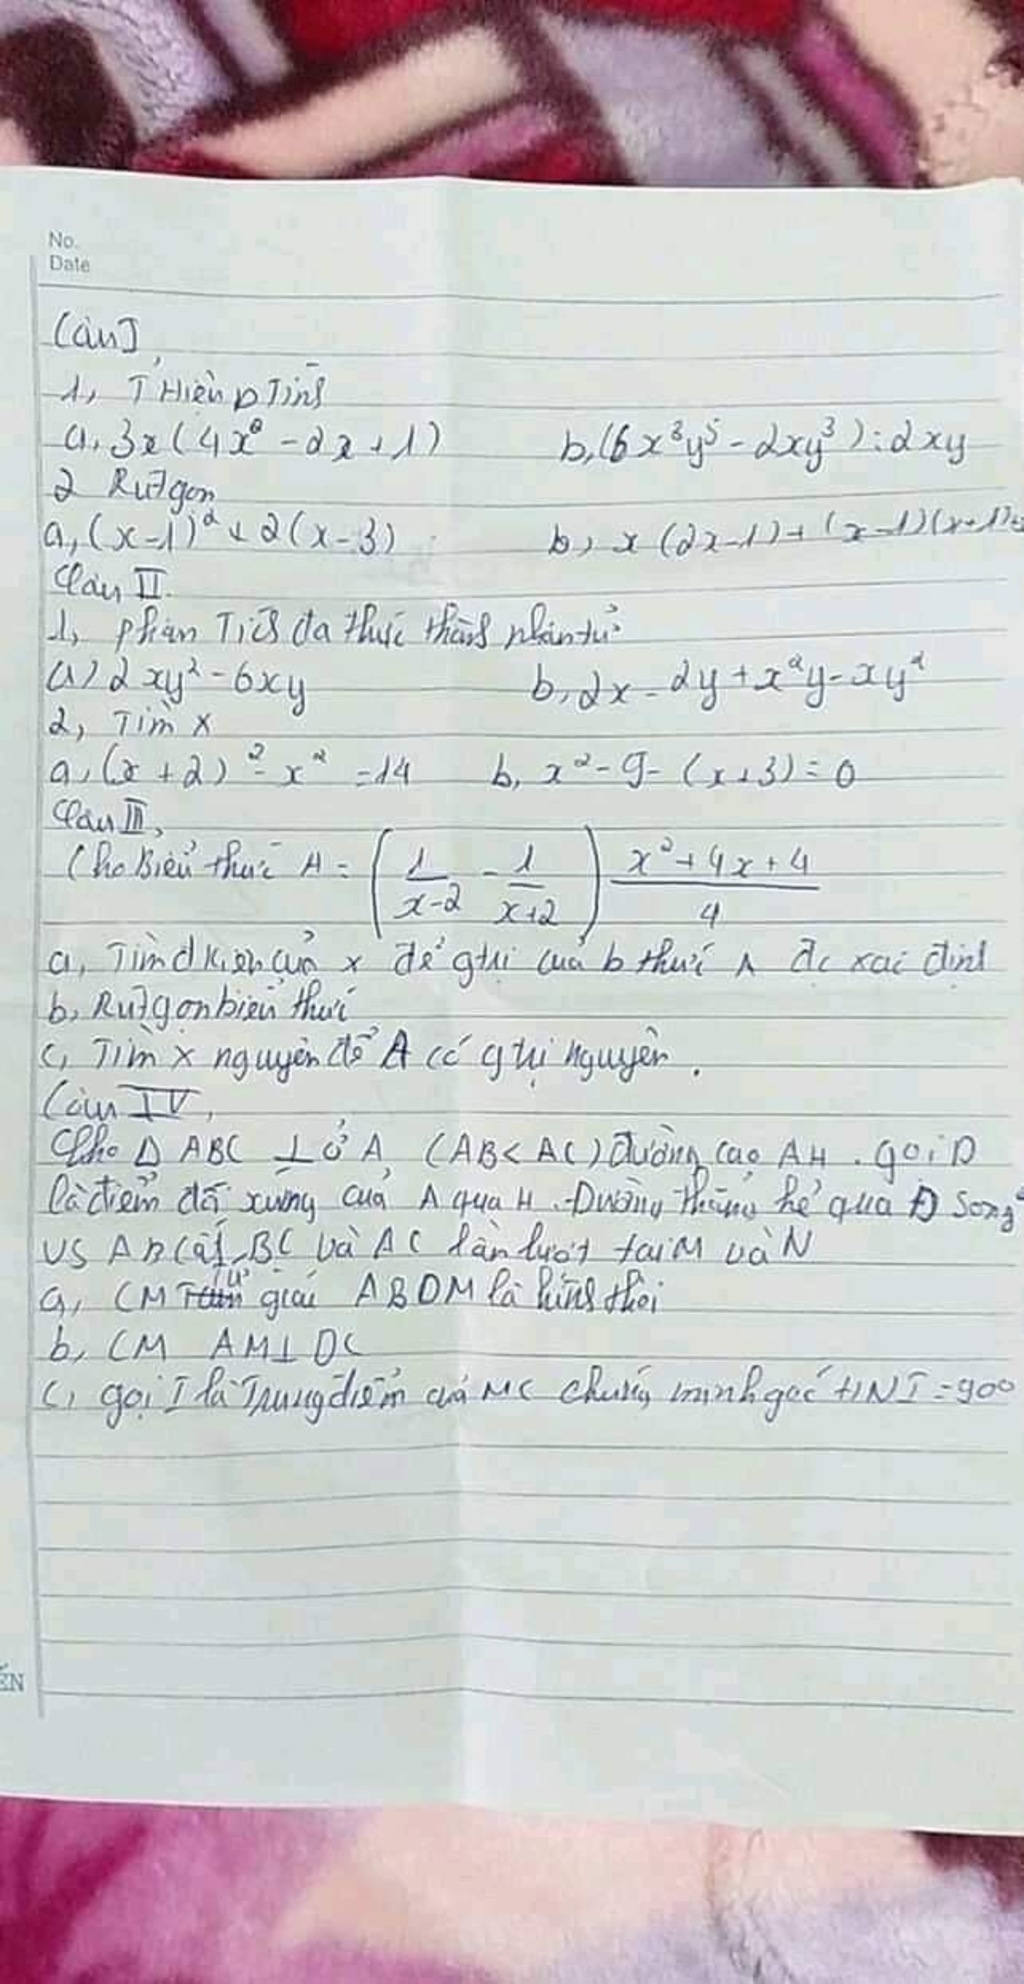 No.
Date
Câu I
1, T Hiện p Tính
a, 3x(4x² - 2x + 1) b, (6x³y⁵ - 2xy³) : 2xy
2 Rút gọn
a, (x-1)² + 2(x-3) b, x(2x-1) + (x-1)(x+1)
Câu II.
1, phân Tích đa thức thành phân tử
a) 2xy² - 6xy b, 2x - 2y + x²y - xy²
2, Tìm x
a, (x+2)² - x² = 14 b, x² - 9 - (x+3) = 0
Câu III,
Cho Biểu thức A = (1/(x-2) - 1/(x+2)) (x² + 4x + 4)/4
a, Tìm đ kiện của x để g trị của b thức A đc xác định
b, Rút gọn biểu thức
c, Tìm x nguyên để A có g trị nguyên.
Câu IV,
Cho Δ ABC ⊥ ở A (AB < AC) đường cao AH. gọi D
là điểm đối xứng của A qua H. Đường thẳng kẻ qua Đ song
vs AB cắt BC và AC lần lượt tại M và N
a, CM tứ giác ABDM là hình thoi
b, CM AM ⊥ DC
c, gọi I là Trung điểm của MC chứng minh góc HNI = 90⁰
ẾN